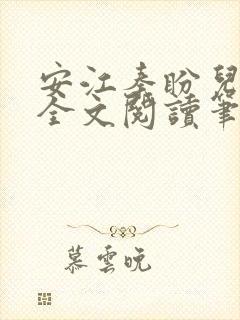 安江秦盼兒
全文閱讀筆
慕雲晚